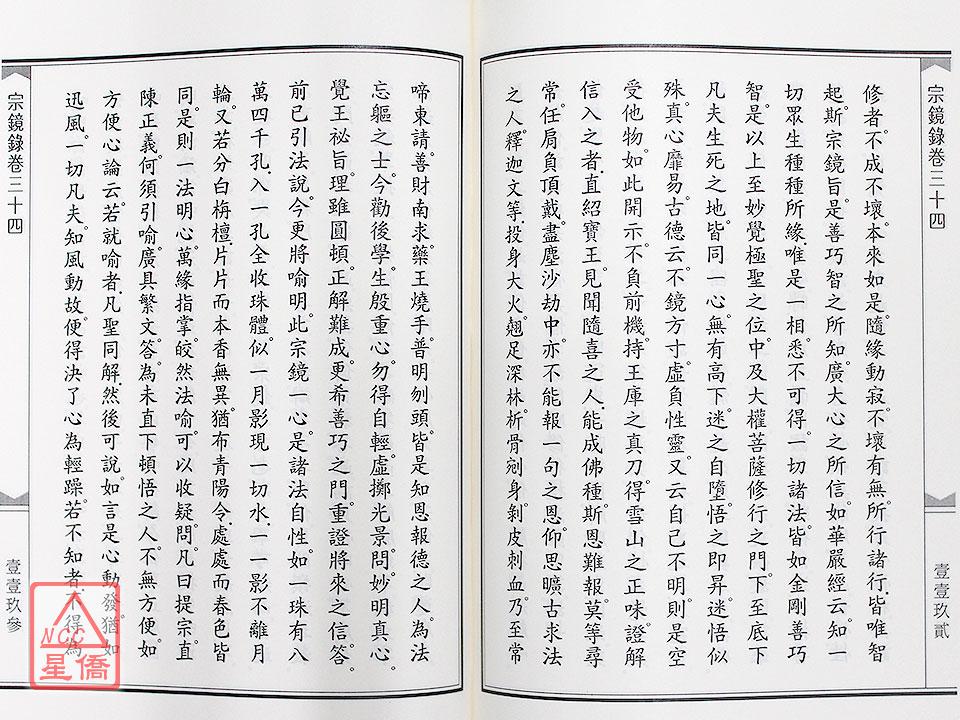 宗鏡錄卷三十四
修者。不成不壞。本來如是。隨緣動寂。不壞有無。所行諸行。皆唯智
起。斯宗鏡旨。是善巧智之所知。廣大心之所信。如華嚴經云。知一
切眾生種種所緣。唯是一相。悉不可得。一切諸法。皆如金剛善巧
智。是以上至妙覺極聖之位。中及大權菩薩修行之門。下至底下
凡夫生死之地。皆同一心。無有高下。迷之自墮。悟之即昇。迷悟似
殊。真心靡易。古德云。不鏡方寸。虛負性靈。又云。自己不明。則是空
受他物。如此開示。不負前機。持王庫之真刀。得雪山之正味。證解
信入之者。直紹寶王。見聞隨喜之人。能成佛種。斯恩難報。莫等尋
常。任肩負頂戴。盡塵沙劫中。亦不能報一句之恩。仰思曠古求法
之人。釋迦文等。投身大火。翹足深林。析骨剜身。剝皮刺血。乃至常
壹壹玖貳
宗鏡錄卷三十四
啼東請。善財南求。藥王燒手。普明刎頭。皆是知恩報德之人。為法
忘軀之士。今勸後學。生殷重心。勿得自輕。虛擲光景。問。妙明真心。
覺王祕旨。理雖圓頓。正解難成。更希善巧之門。重證將來之信。答。
前已引法說。今更將喻明。此宗鏡一心。是諸法自性。如一珠有八
萬四千孔。入一孔全收珠體。似一月影現一切水。一一影不離月
輪。又若分白栴檀。片片而本香無異。猶布青陽令。處處而春色皆
同。是則一法明心。萬緣指掌。皎然法喻。可以收疑。問。凡曰提宗。直
陳正義。何須引喻。廣具繁文。答。為未直下頓悟之人。不無方便。如
方便心論云。若就喻者。凡聖同解。然後可說。如言是心動發。猶如
迅風。一切凡夫。知風動故。便得決了心為輕躁。若不知者。不得為
壹壹玖參
NCC
星僑